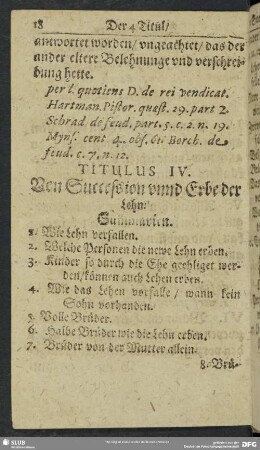 18 Der 4 Titul/
antwortet worden/ vngeachtet/ das der
ander eltere Belehnunge vnd verschrei-
bung hette.
per l. quotiens D. de rei vendicat.
Hartman. Pistor. quæst. 29. part 2.
Schrad. de feud. part. 5. c. 2. n. 19.
Myns. cent 4. obs. 61. Borch. de
feud. c. 7. n. 12.
TITULUS IV.
Von Succession vnnd Erbe der
Lehn.
Summarien.
1. Wie Lehn verfallen.
2. Welche Personen die newe Lehn erben.
3. Kinder so durch die Ehe geehliget wer-
den/ können auch Lehen erben.
4. Wie das Lehen verfalle/ wann kein
Sohn vorhanden.
5. Volle Brüder.
6. Halbe Brüder wie die Lehn erben.
7. Brüder von der Mutter allein.
8. Brü-
SLUB
DFG